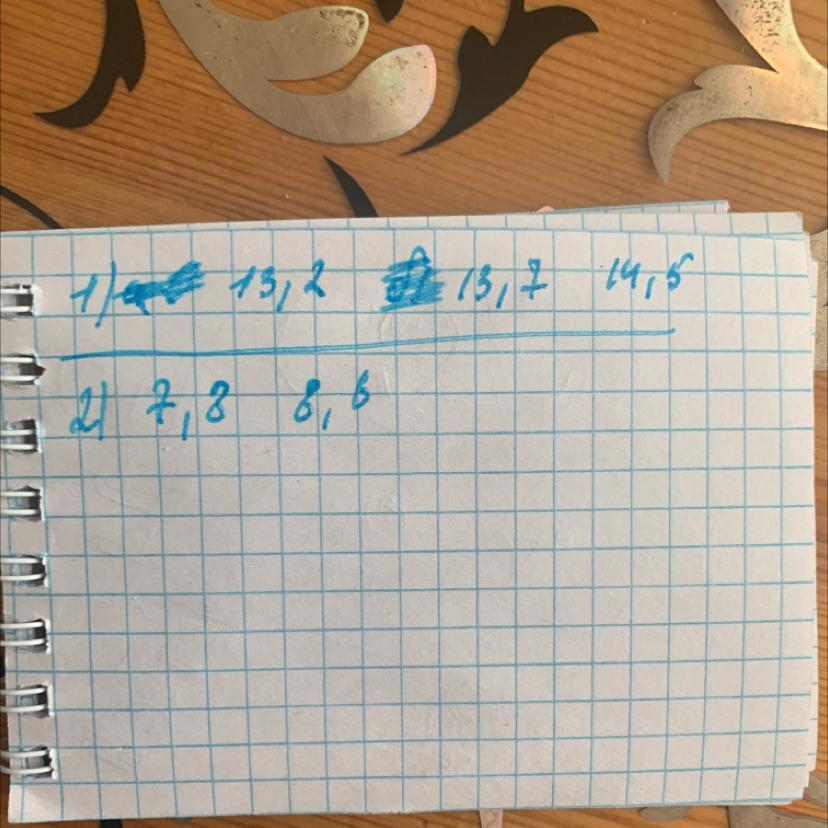 1) 13,2 13,7 14,5
2) 7,8 8,6